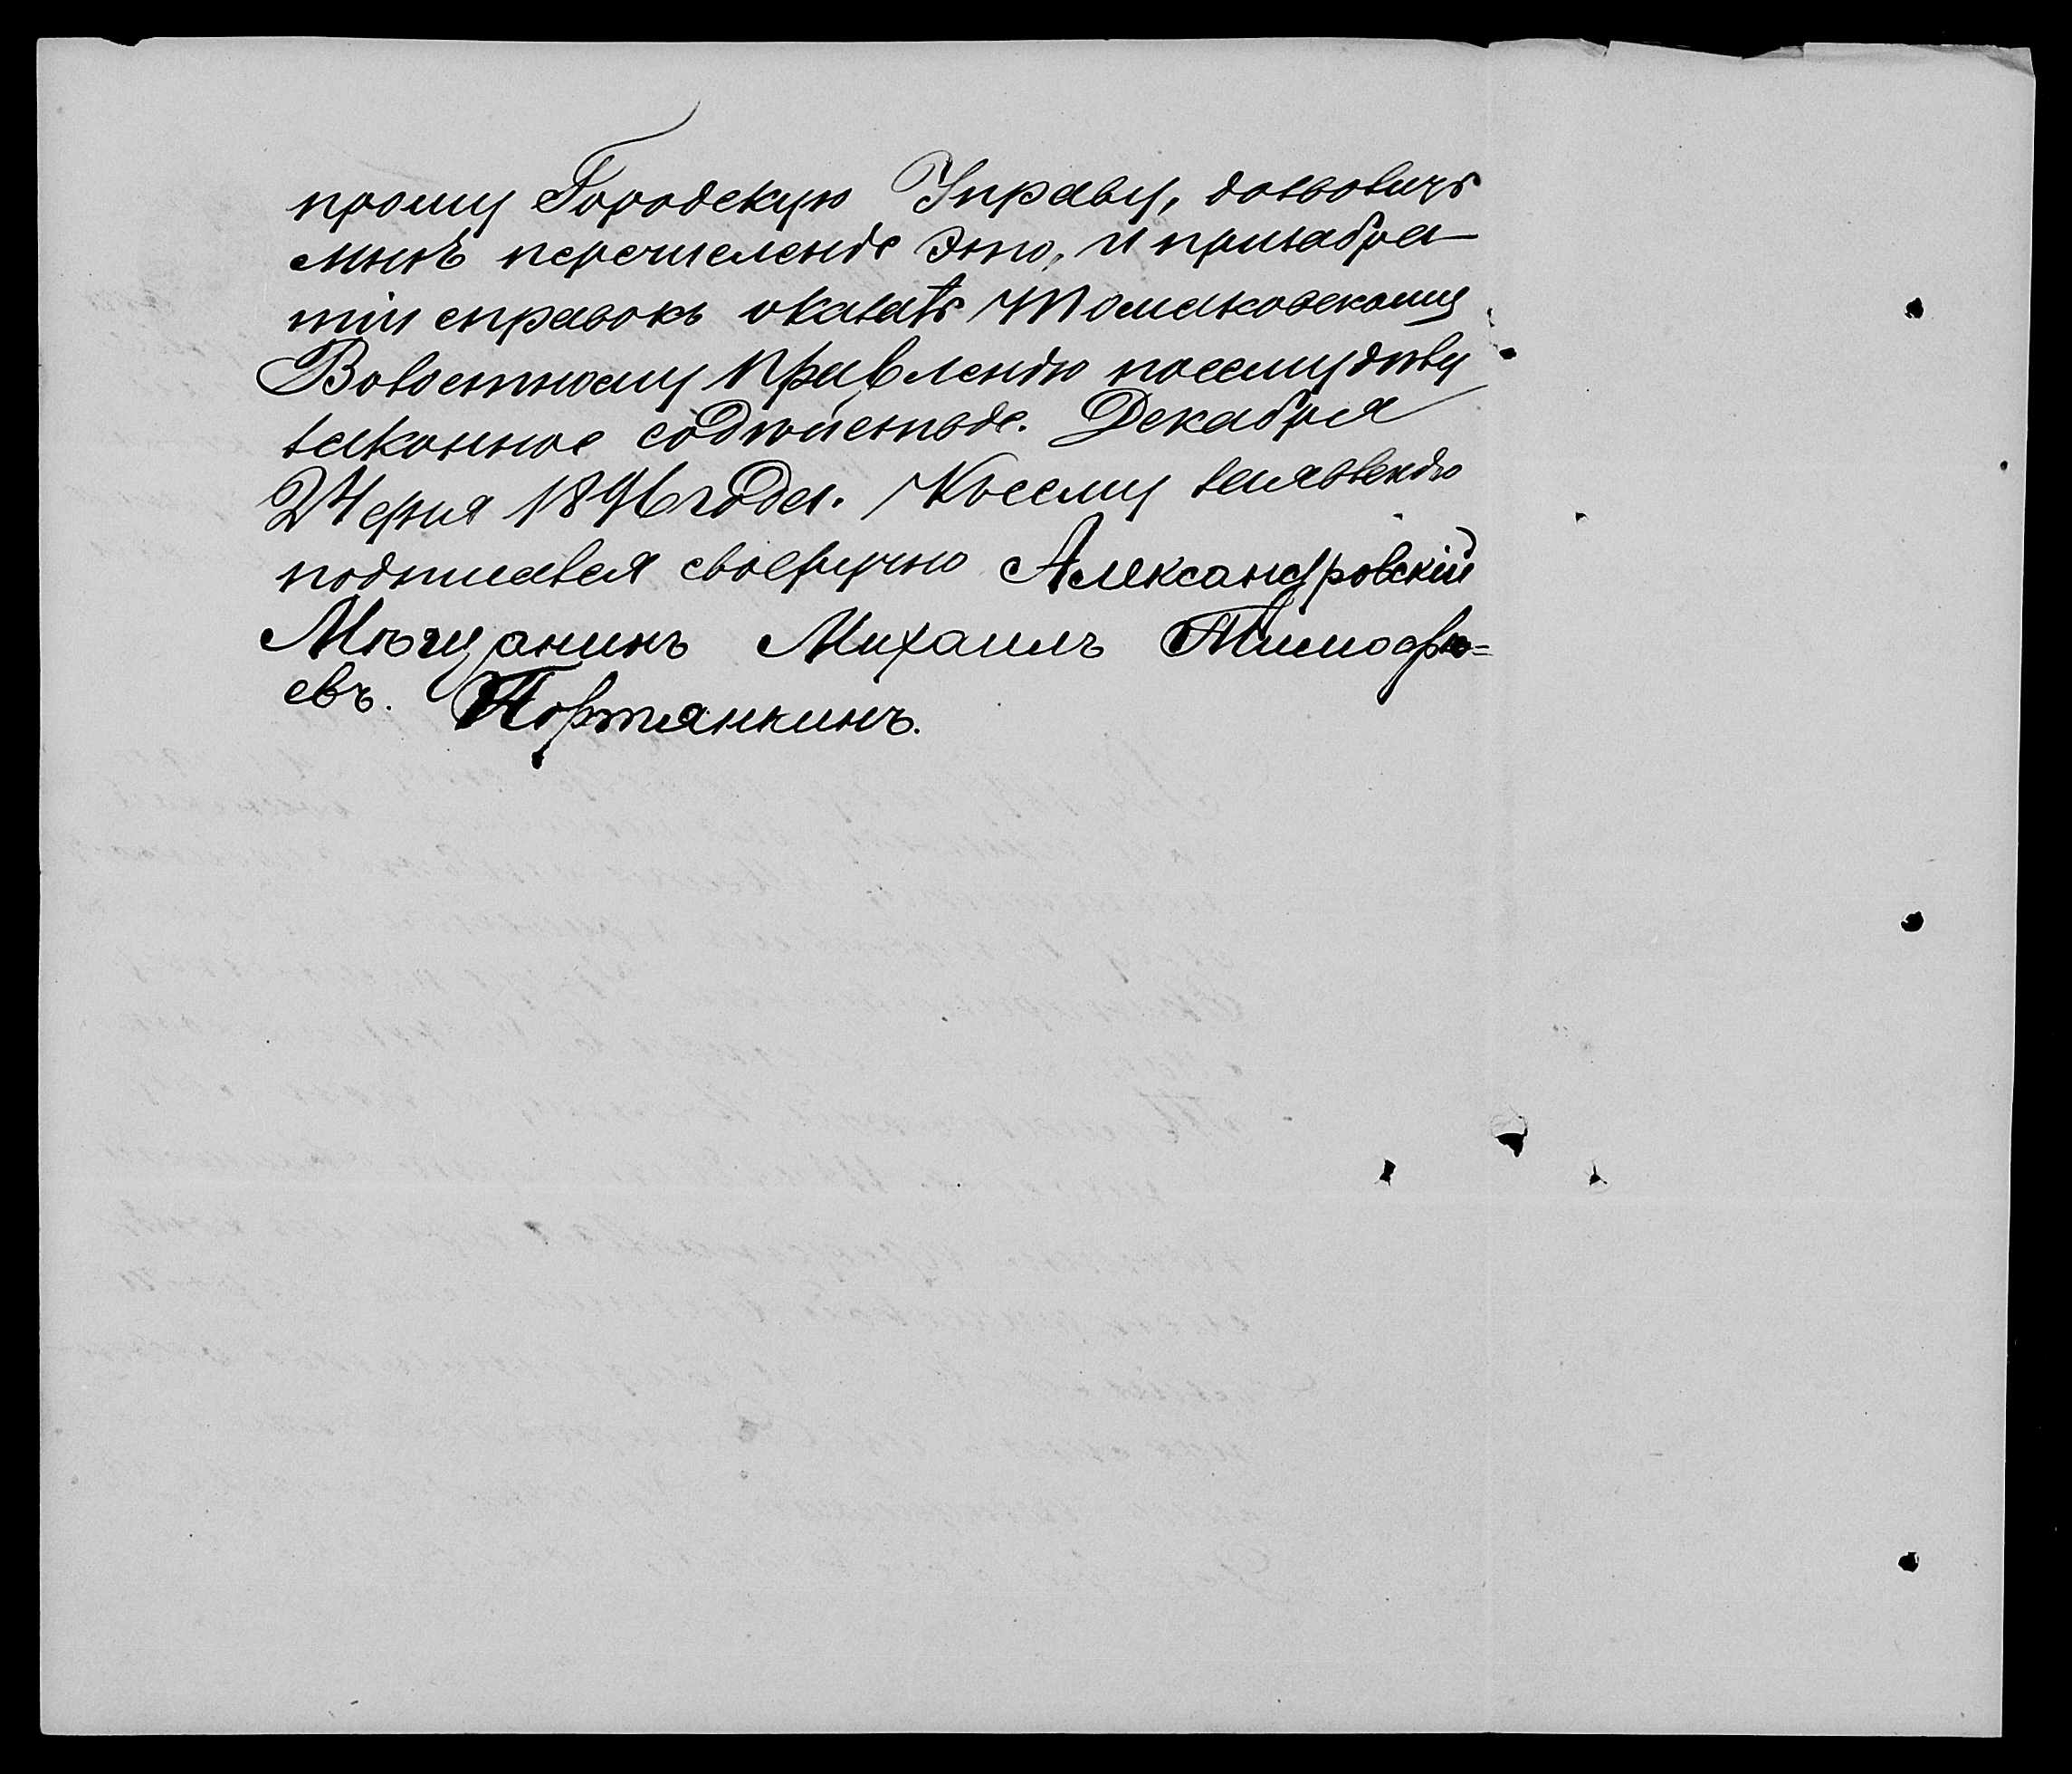 прошу Городскую Управу, дозволить
мнѣ перечисленіе это, и при забра
ніи справокъ оказать Томаковскому
Волостному Правленію посему дѣлу
законное содѣйствіе. Декабря
24 дня 1896 года. Къ сему заявленію
подписался своеручно Александровскій
Мѣщанинъ Михаилъ Тимофѣ=
евъ. Портянкинъ.